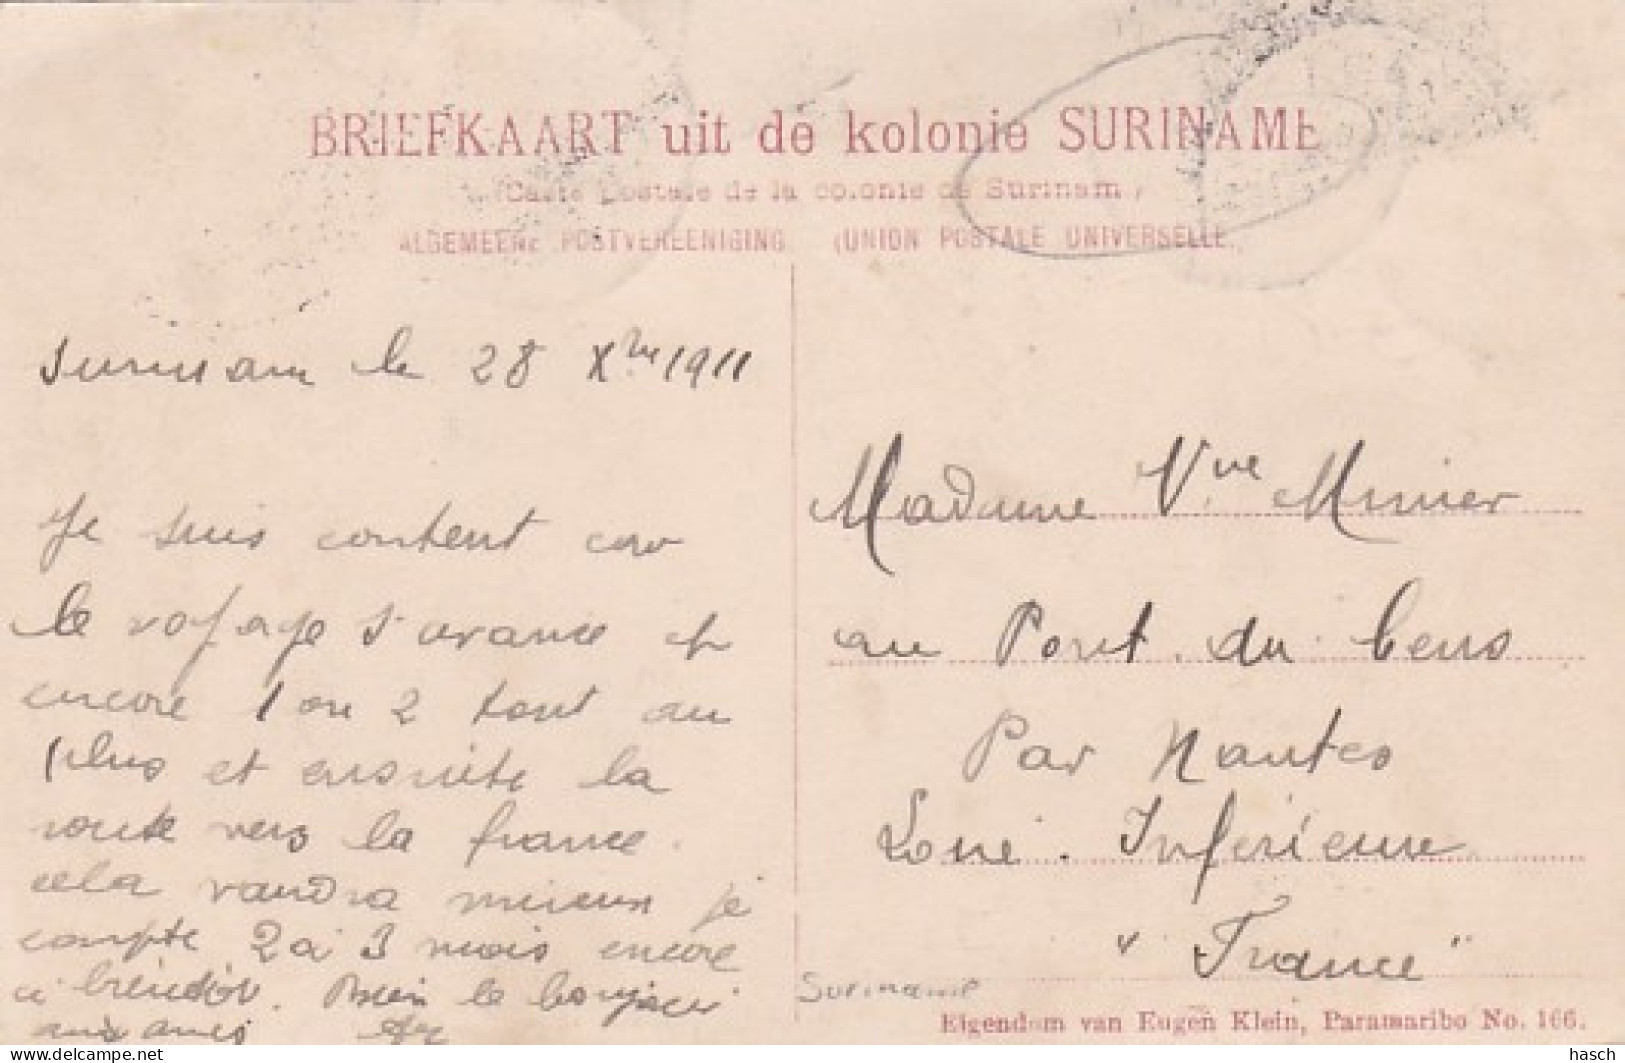 BRIEFKAART uit de kolonie SURINAME
(Carte Postale de la colonie de Surinam)
ALGEMEENE POSTVEREENIGING (UNION POSTALE UNIVERSELLE)
Surinam le 28 Xbre 1911
Je suis content car
le voyage s'avance et
encore 1 ou 2 tout au
plus et ensuite la
route vers la france.
cela vaudra mieux je
compte 2 à 3 mois encore
a bientôt. Bien le bonjour
aux amis
Madame Vve Minier
au Pont du Cens
Par Nantes
Loire Inférieure
"France"
Suriname
Eigendom van Eugen Klein, Paramaribo No. 166.
hasch